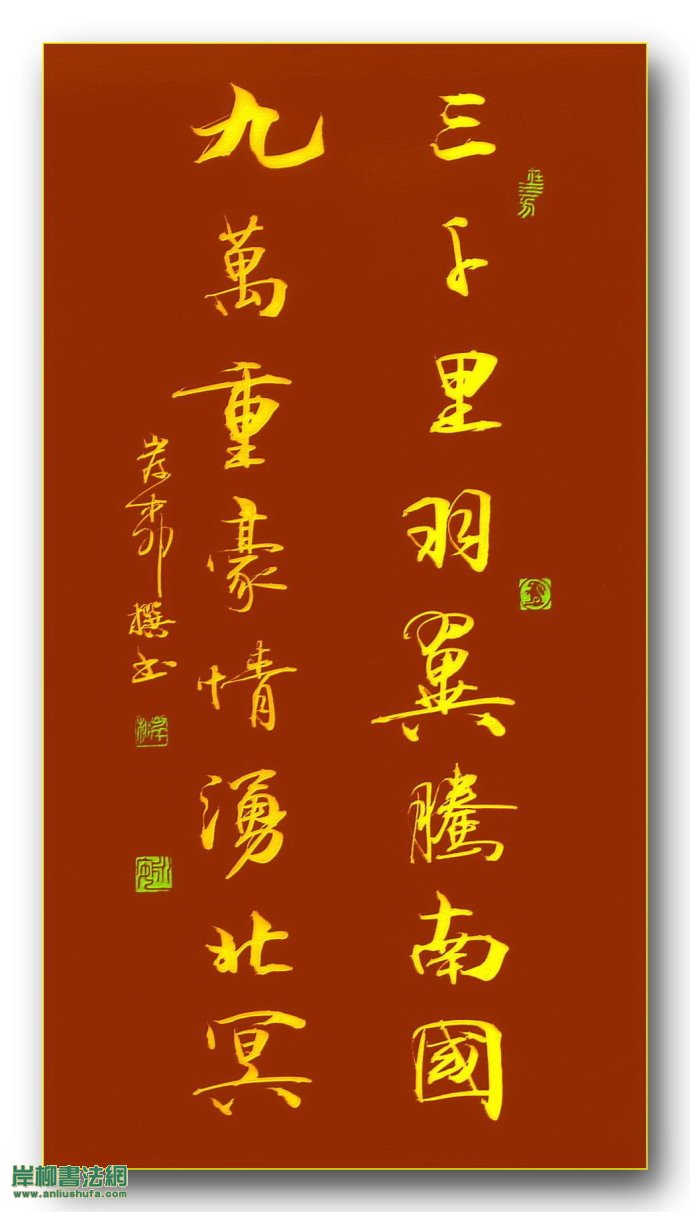 三千里羽翼騰南國
九萬重豪情湧北冥
岸柳撰書
岸柳書法網
www.anliushufa.com